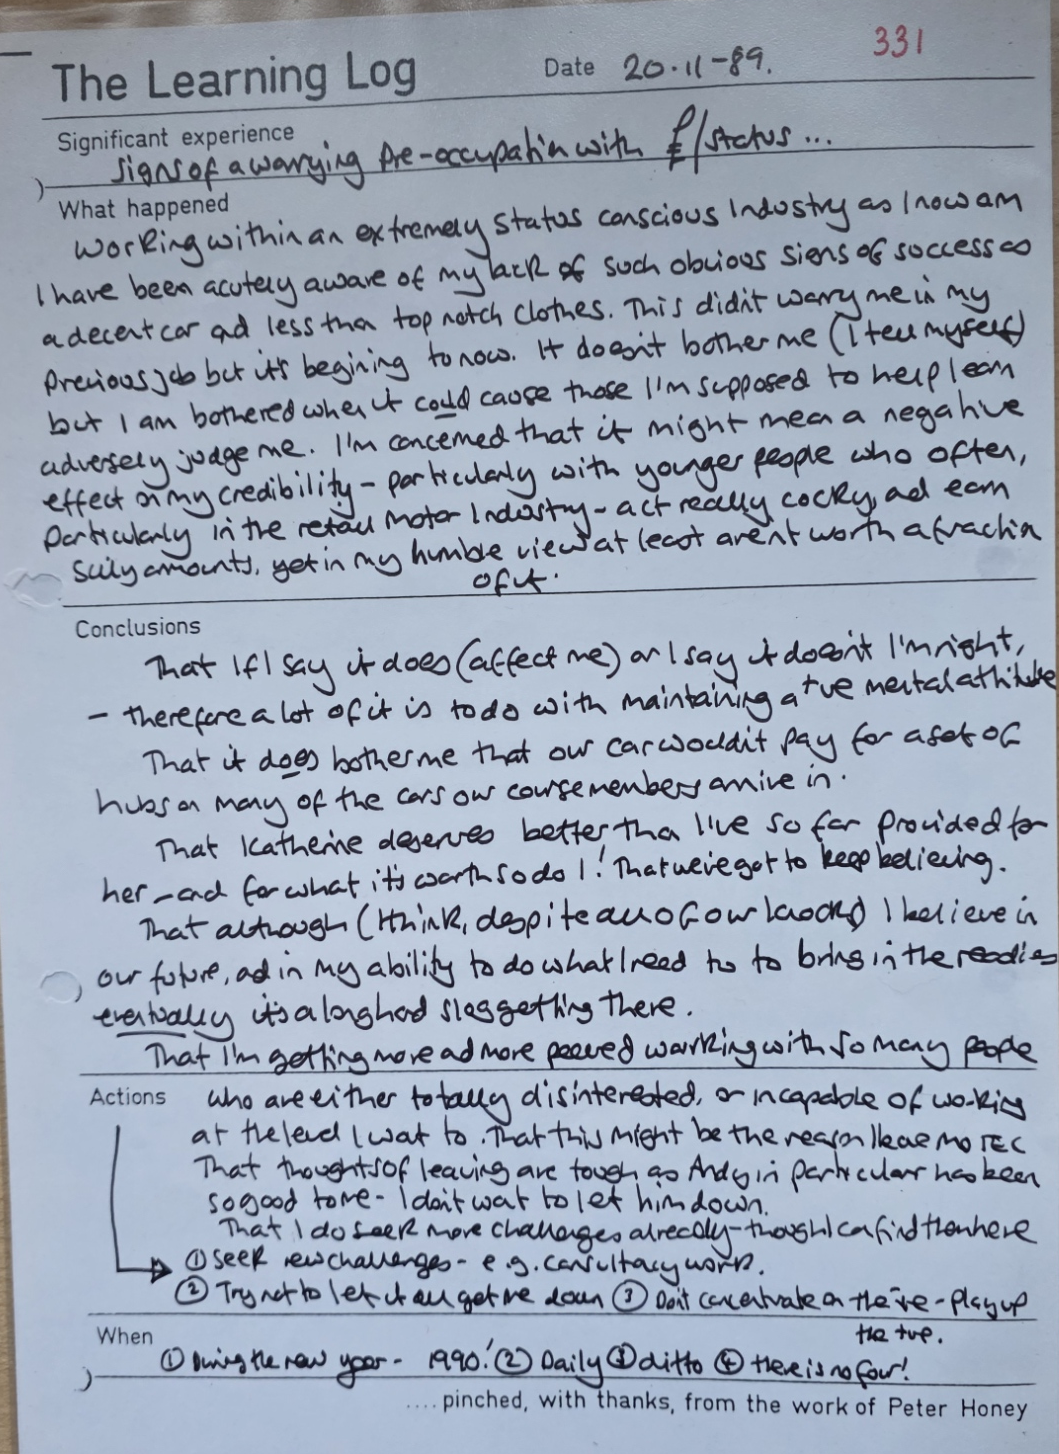 331
The Learning Log
Date 20·11-89.
Significant experience
Signs of a worrying pre-occupation with £/status ...
What happened
Working within an extremely status conscious Industry as I now am
I have been acutely aware of my lack of such obvious signs of success as
a decent car ad less than top notch clothes. This didn't worry me in my
previous job but it's begining to now. It doesn't bother me (I tell myself)
but I am bothered when it could cause those I'm supposed to help learn
adversely judge me. I'm concerned that it might mean a negative
effect on my credibility - particularly with younger people who often,
particularly in the retail Motor Industry - act really cocky, ad earn
silly amounts, yet in my humble view at least aren't worth a fraction
of it.
Conclusions
That if I say it does (affect me) or I say it doesn't I'm right,
- therefore a lot of it is to do with maintaining a +ve mental attitude
That it does bother me that our car wouldn't pay for a set of
hubs on many of the cars our course members arrive in.
That Katherine deserves better than I've so far provided for
her - and for what it's worth so do I! That we've got to keep believing.
That although (I think, despite all of our knocks) I believe in
our future, ad in my ability to do what I need to to bring in the readies
eventually it's a long hard slog getting there.
That I'm getting more ad more peeved working with so many people
Actions
who are either totally disinterested, or incapable of working
at the level I want to. That this might be the reason I leave
That thoughts of leaving are tough as Andy in particular has been
so good to me - I don't want to let him down.
That I do seek more challenges already - though I can find them here
① Seek new challenges - e.g. consultancy work.
② Try not to let it all get me down ③ Don't concentrate on the -ve - play up
the +ve.
When
① During the new year - 1990! ② Daily ③ ditto ④ there is no four!
.... pinched, with thanks, from the work of Peter Honey